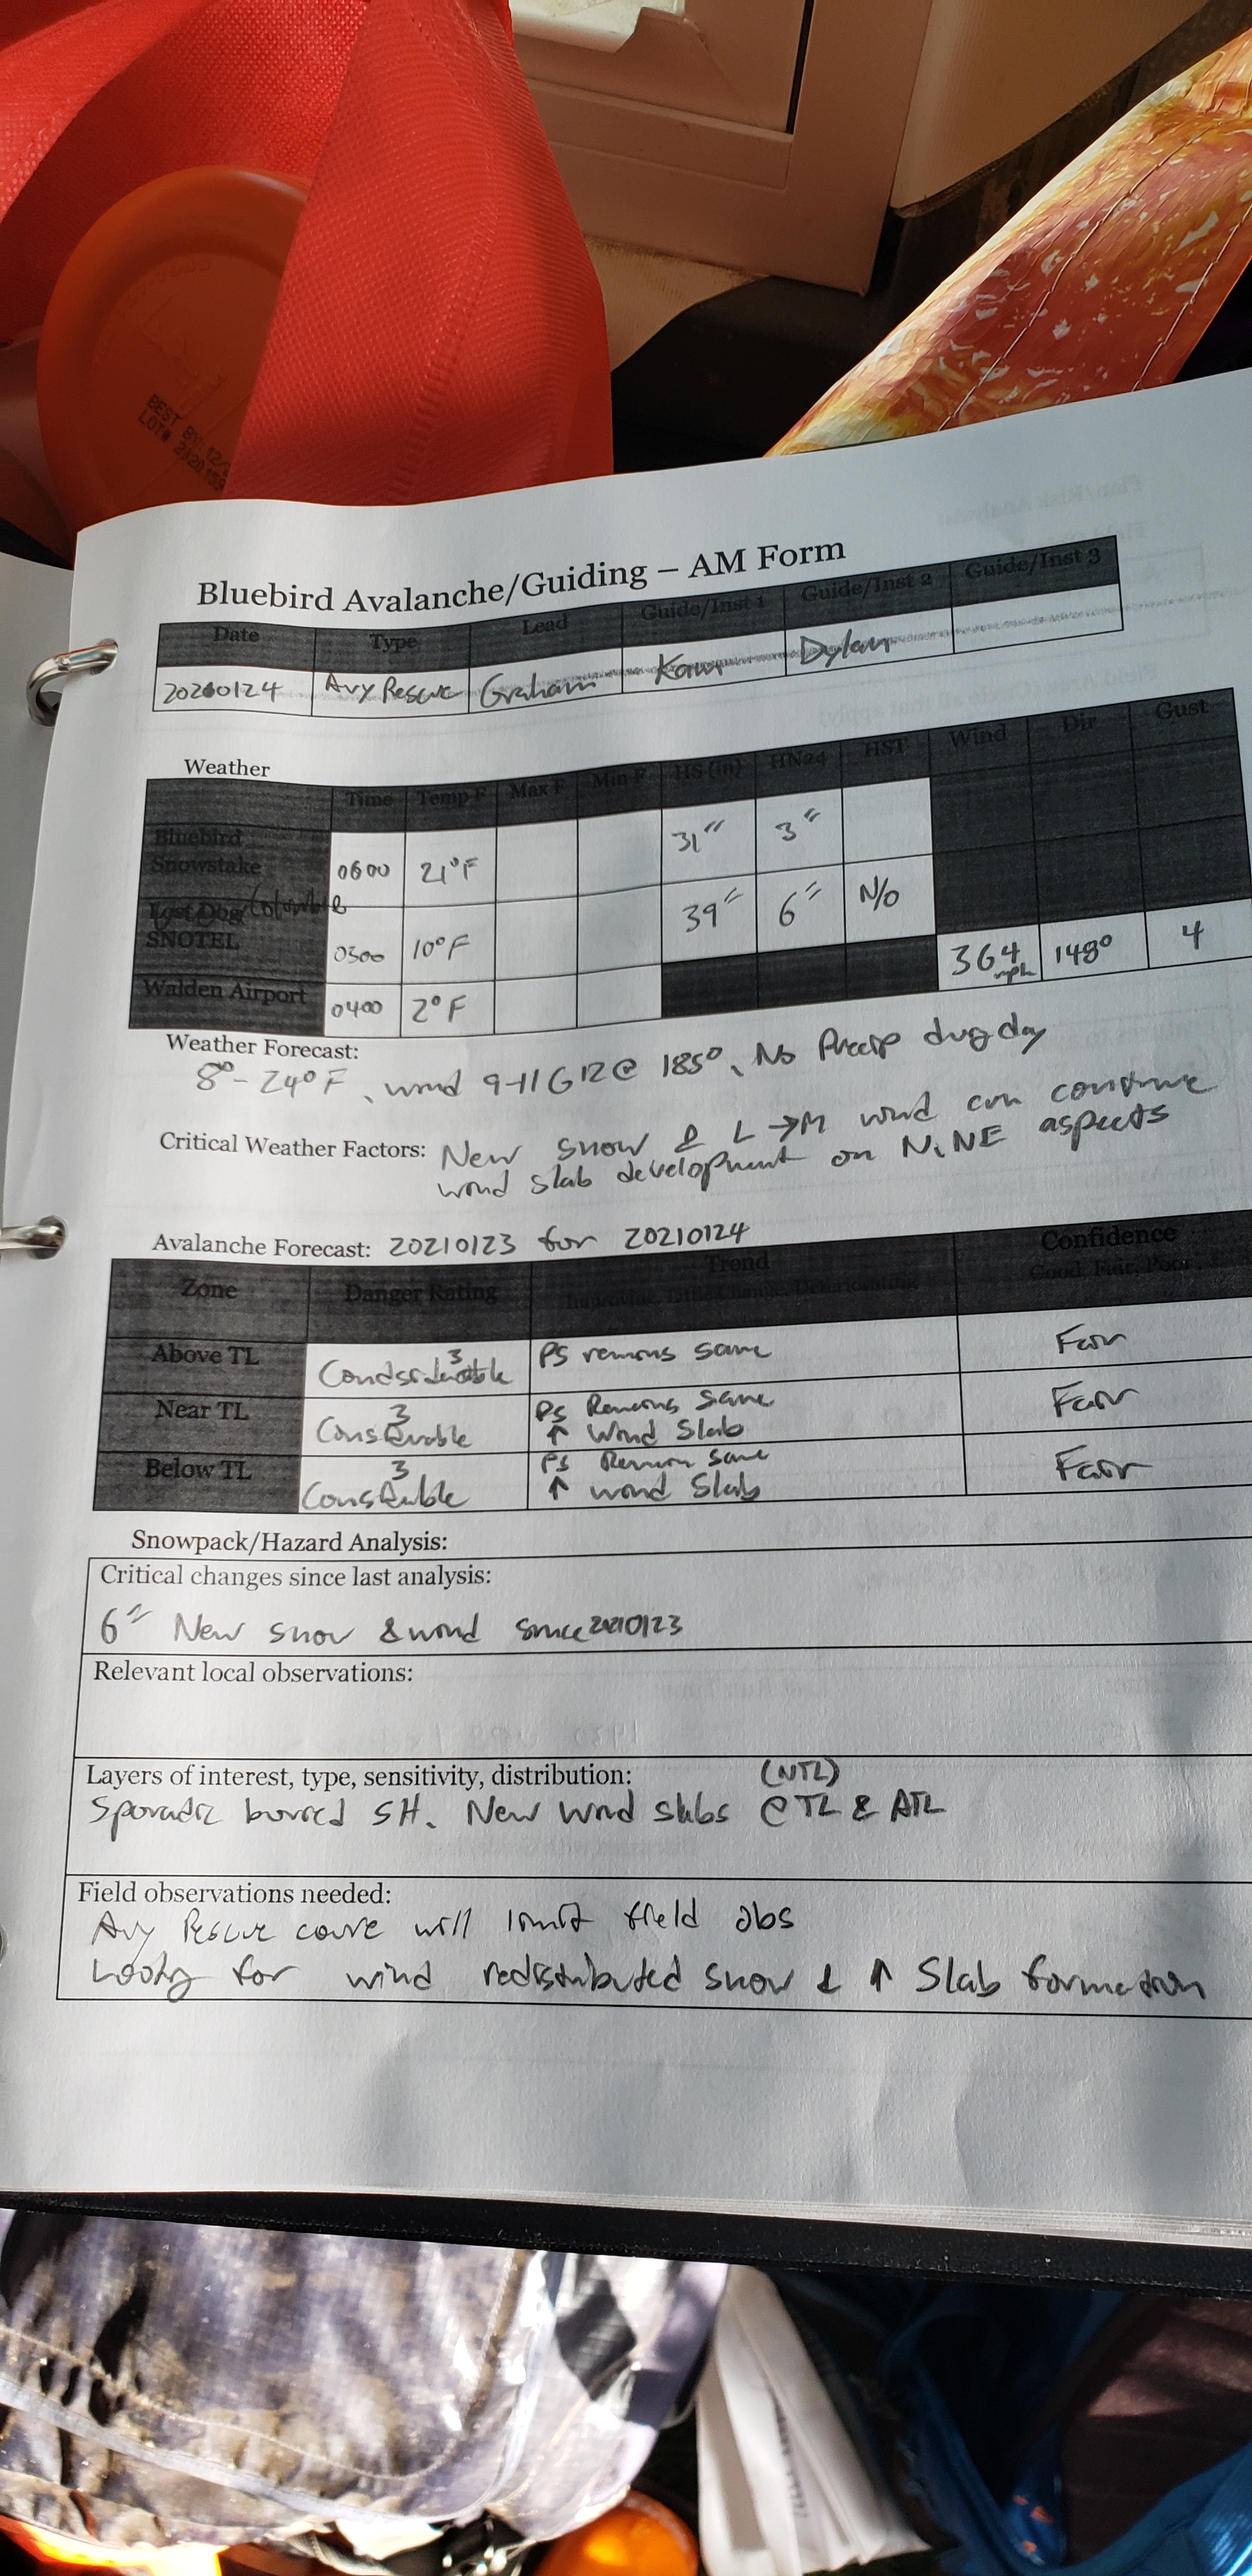 BEST BY 12/
LOT# 2120
Bluebird Avalanche/Guiding – AM Form
Date Type Lead Guide/Inst 1 Guide/Inst 2 Guide/Inst 3
20210124 Avy Rescue Graham Kaur Dylan
Weather
Time Temp F Max F Min F HS (in) HN24 HST Wind Dir Gust
Bluebird Snowstake 0600 21°F 31" 3"
Lost Dog/Columbine SNOTEL 0300 10°F 39" 6" N/O
Walden Airport 0400 2°F 364 mph 148° 4
Weather Forecast:
8°-24°F, wind 9-11 G12 @ 185°, No Precip drug day
Critical Weather Factors: New snow & L → M wind can continue
wind slab development on N, NE aspects
Avalanche Forecast: 20210123 for 20210124
Zone Danger Rating Trend Confidence
Good, Fair, Poor
Above TL 3 Condsiderable PS remains same Fair
Near TL 3 Considerable PS Remains Same ↑ Wind Slab Fair
Below TL 3 Considerable PS Remain Same ↑ wind Slab Fair
Snowpack/Hazard Analysis:
Critical changes since last analysis:
6" New snow & wind since 20210123
Relevant local observations:
Layers of interest, type, sensitivity, distribution: (NTL)
Sporadic buried SH. New Wind slabs @ TL & ATL
Field observations needed:
Avy Rescue course will limit field obs
Looking for wind redistributed snow & ↑ Slab formation